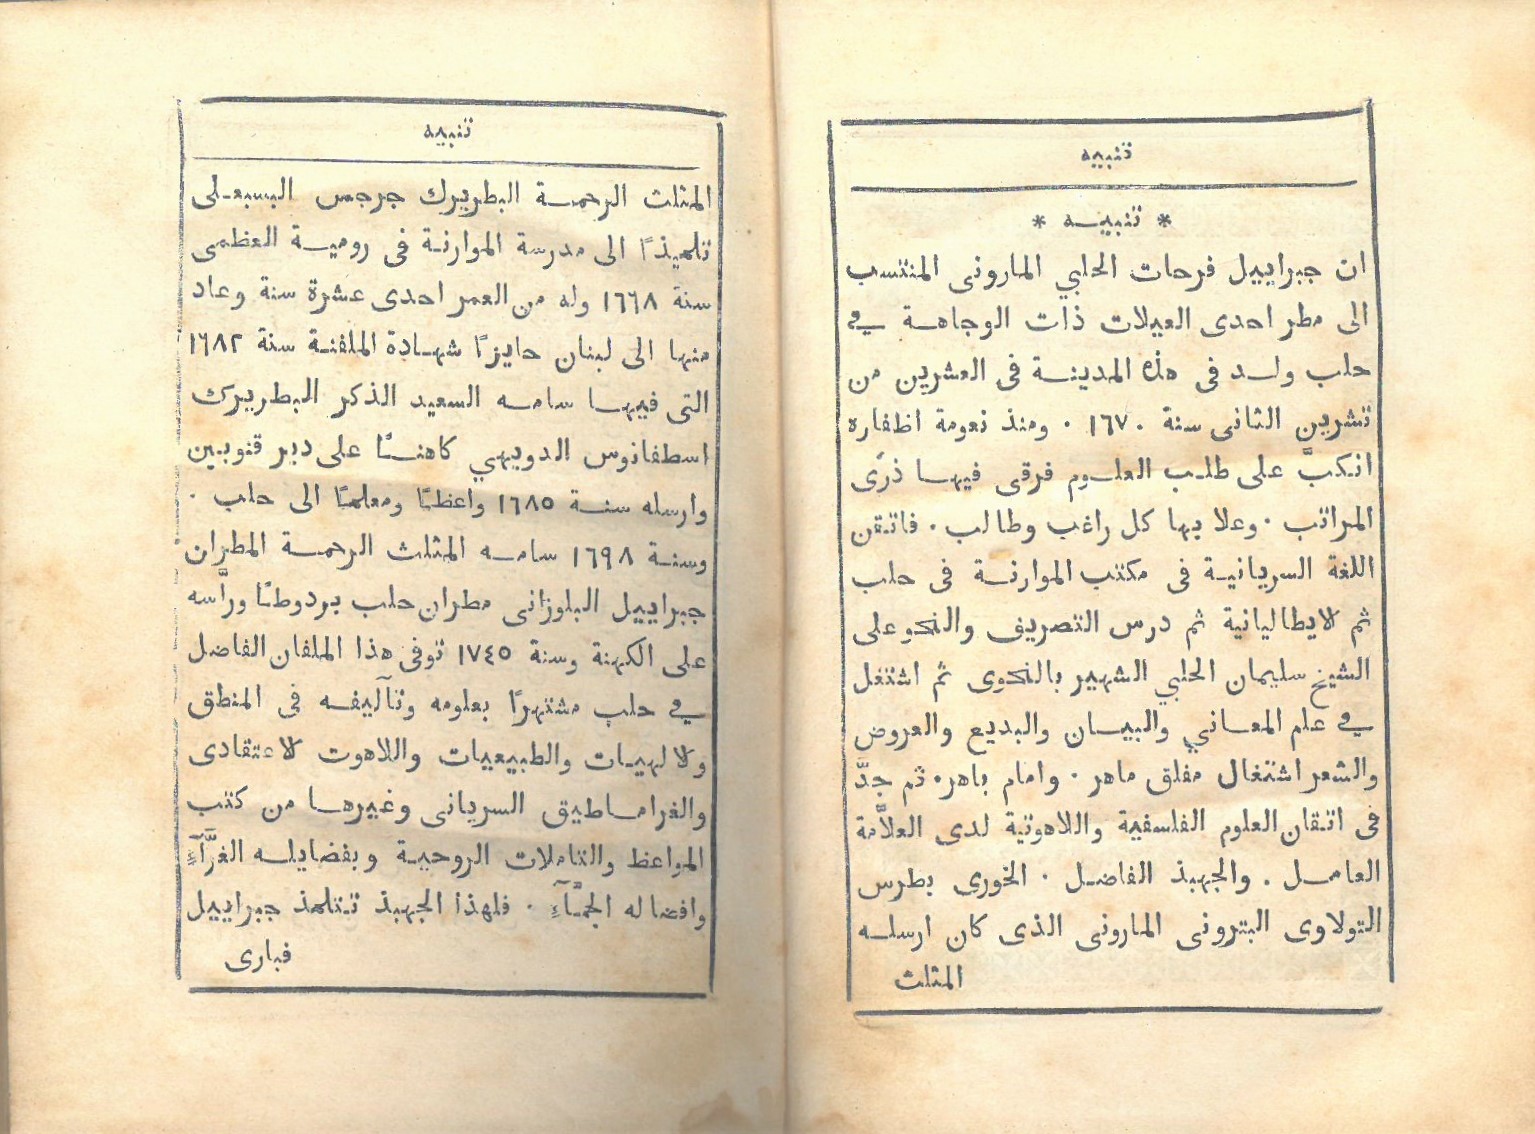 تنبيه
* تنبيه *
ان جبراييل فرحات الحلبي المارونى المنتسب
الى مطر احدى العيلات ذات الوجاهة في
حلب ولد فى هذه المدينة فى العشرين من
تشرين الثانى سنة ١٦٧٠ · ومنذ نعومة اظفاره
انكبَّ على طلب العلوم فرقى فيها ذرًى
المراتب · وعلا بها كل راغب وطالب · فاتقن
اللغة السريانية فى مكتب الموارنة فى حلب
ثم لايطاليانية ثم درس التصريف والنحو على
الشيخ سليمان الحلبي الشهير بالنحوى ثم اشتغل
في علم المعاني والبيان والبديع والعروض
والشعر اشتغال مفلق ماهر · وامام باهر · ثم جدَّ
فى اتقان العلوم الفلسفية واللاهوتية لدى العلاَّمة
العامل . والجهبذ الفاضل · الخورى بطرس
التولاوى البترونى المارونى الذى كان ارسله
المثلث
تنبيه
المثلث الرحمة البطريرك جرجس البسبعلى
تلميذًا الى مدرسة الموارنة فى رومية العظمى
سنة ١٦٦٨ وله من العمر احدى عشرة سنة وعاد
منها الى لبنان حايزًا شهادة الملفنة سنة ١٦٨٢
التى فيها سامه السعيد الذكر البطريرك
اسطفانوس الدويهي كاهنًا على دير قنوبين
وارسله سنة ١٦٨٥ واعظًا ومعلمًا الى حلب ·
وسنة ١٦٩٨ سامه المثلث الرحمة المطران
جبراييل البلوزانى مطران حلب بردوطًا ورأَّسه
على الكهنة وسنة ١٧٤٥ توفى هذا الملفان الفاضل
في حلب مشتهرًا بعلومه وتآليفه فى المنطق
ولالهيات والطبيعيات واللاهوت لاعتقادى
والغراماطيق السريانى وغيرها من كتب
المواعظ والتاملات الروحية وبفضايله الغرَّآءِ
وافضاله الجمَّآءِ · فلهذا الجهبذ تتلمذ جبراييل
فبارى